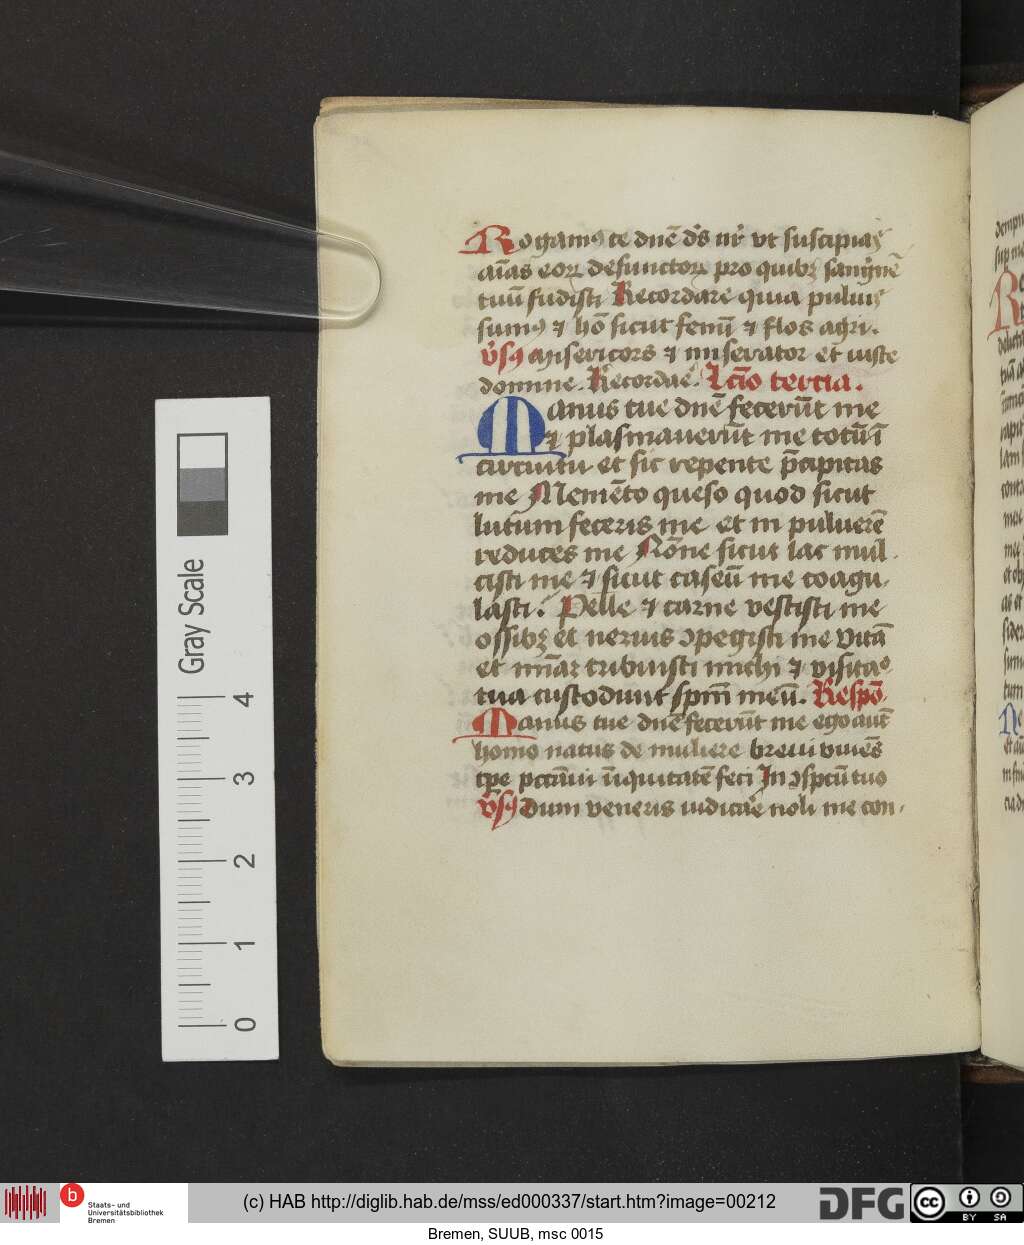 Rogamꝰ te dnē dꝰs nr̄ vt suscipias
aīas eoꝝ defunctoꝝ pro quibꝫ sanguinē
tuū fudisti Recordare quia puluis
sumꝰ ⁊ hō sicut fenū ⁊ flos agri.
v̄sꝰ Misericors ⁊ miserator et iuste
domine. Recordaē. Lc̄io tercia.
Manus tue dnē fecerūt me
⁊ plasmauerūt me totū ī
circuitu et sic repente p̄cipitas
me Memēto queso quod sicut
lutum feceris me et in puluerē
reduces me Nōne sicut lac mul
cisti me ⁊ sicut caseū me coagu
lasti. Pelle ⁊ carne vestisti me
ossibꝫ et neruis ꝯpegisti me vitā
et mīaꝫ tribuisti michi ⁊ visitaᵒ
tua custodiuit spm̄ meū. Respō
Manus tue dnē fecerūt me ego aut̄
homo natus de muliere breui viuēs
tꝑe pctām̄ īiquitatē feci In ꝯspctū tuo
v̄sꝰ Dum veneris iudicāe noli me con
Gray Scale
4
3
2
1
0
b
Staats- und
Universitätsbibliothek
Bremen
(c) HAB http://diglib.hab.de/mss/ed000337/start.htm?image=00212
DFG
cc
BY SA
Bremen, SUUB, msc 0015